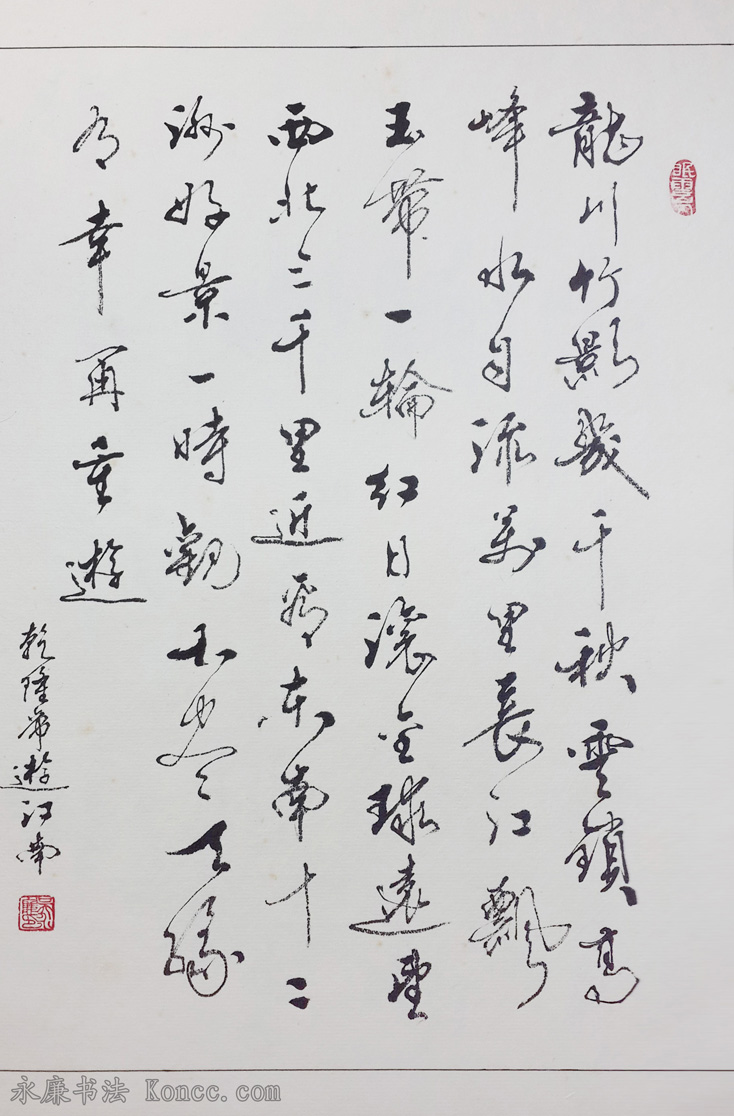 龍川竹影幾千秋雲鎖高
峰水自流萬里長江飄
玉帶一輪紅日滾金球遠望
西北三千里近看東南十二
洲好景一時觀不盡天緣
有幸再重遊
乾隆帝遊江南
永廉书法 Koncc.com